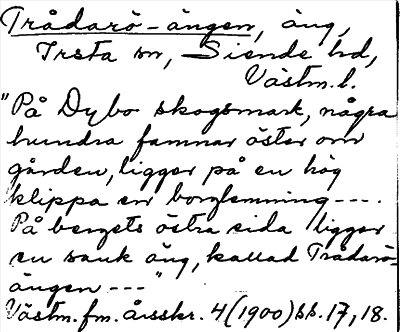 Trådarö-ängen, äng,
Irsta sn, Siende hd,
Västm. l.
"På Dybo skogsmark, några
hundra famnar öster om
gården, ligger på en hög
klippa en borglemning ---.
På bergets östra sida ligger
en sank äng, kallad Trådarö-
ängen ---"
Västm. fm. årsskr. 4 (1900) ss. 17, 18.